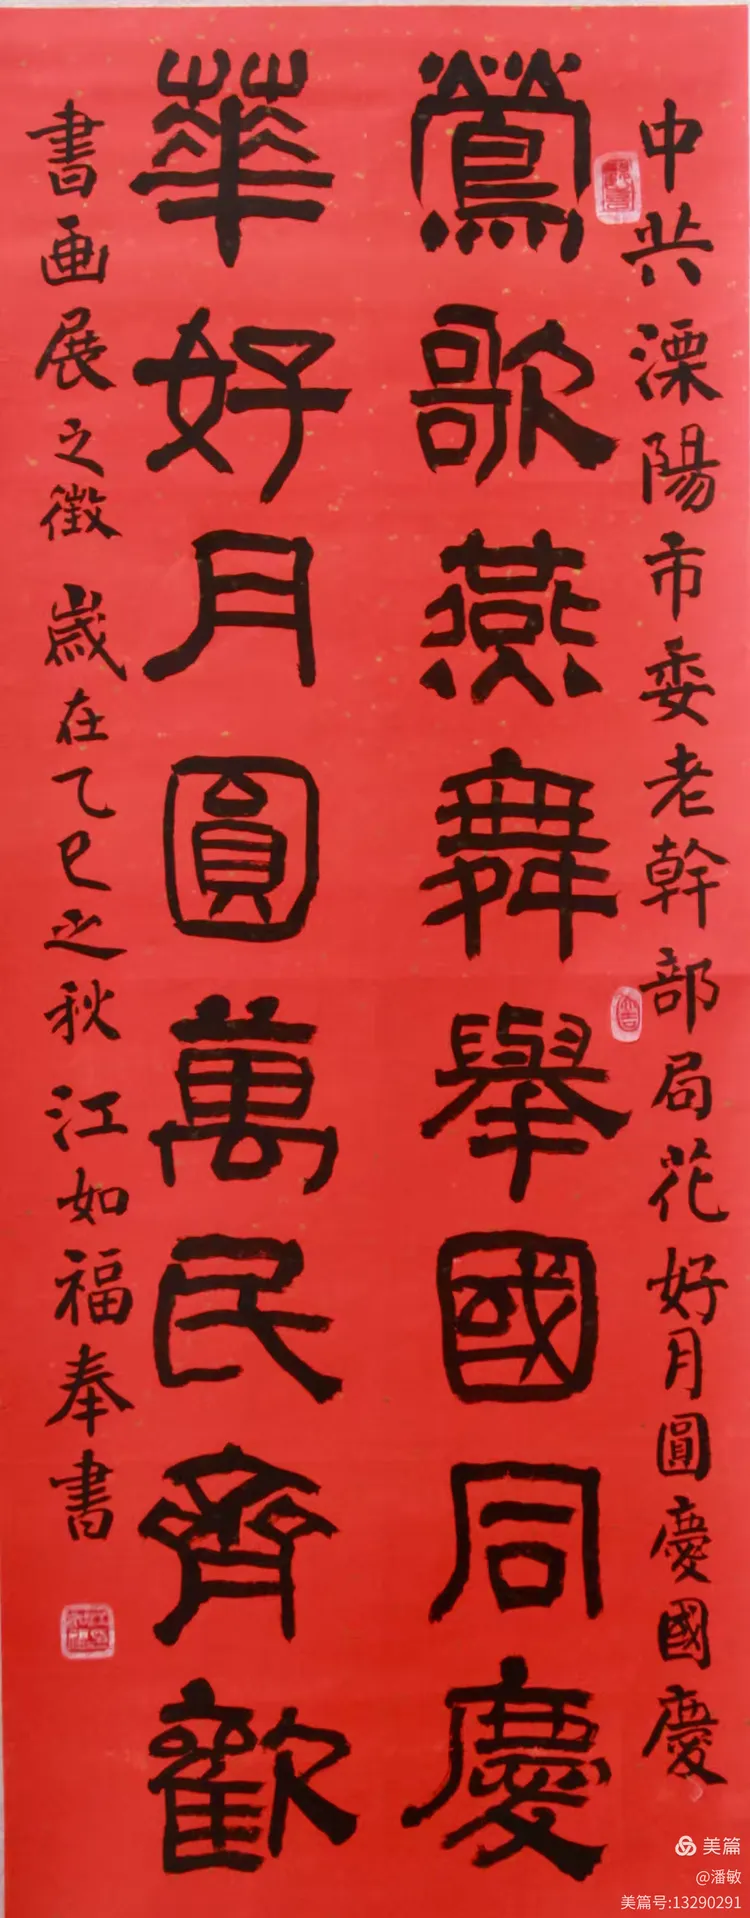 中共溧陽市委老幹部局花好月圓慶國慶
鶯歌燕舞舉國同慶
華好月圓萬民齊歡
書画展之徵 歲在乙巳之秋 江如福奉書
美篇
@潘敏
美篇号:13290291